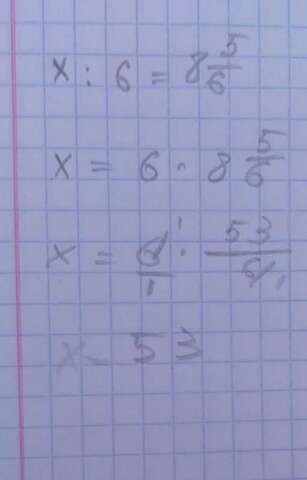 x : 6 = 8 5/6
x = 6 · 8 5/6
x = 6/1 · 53/6
x = 53